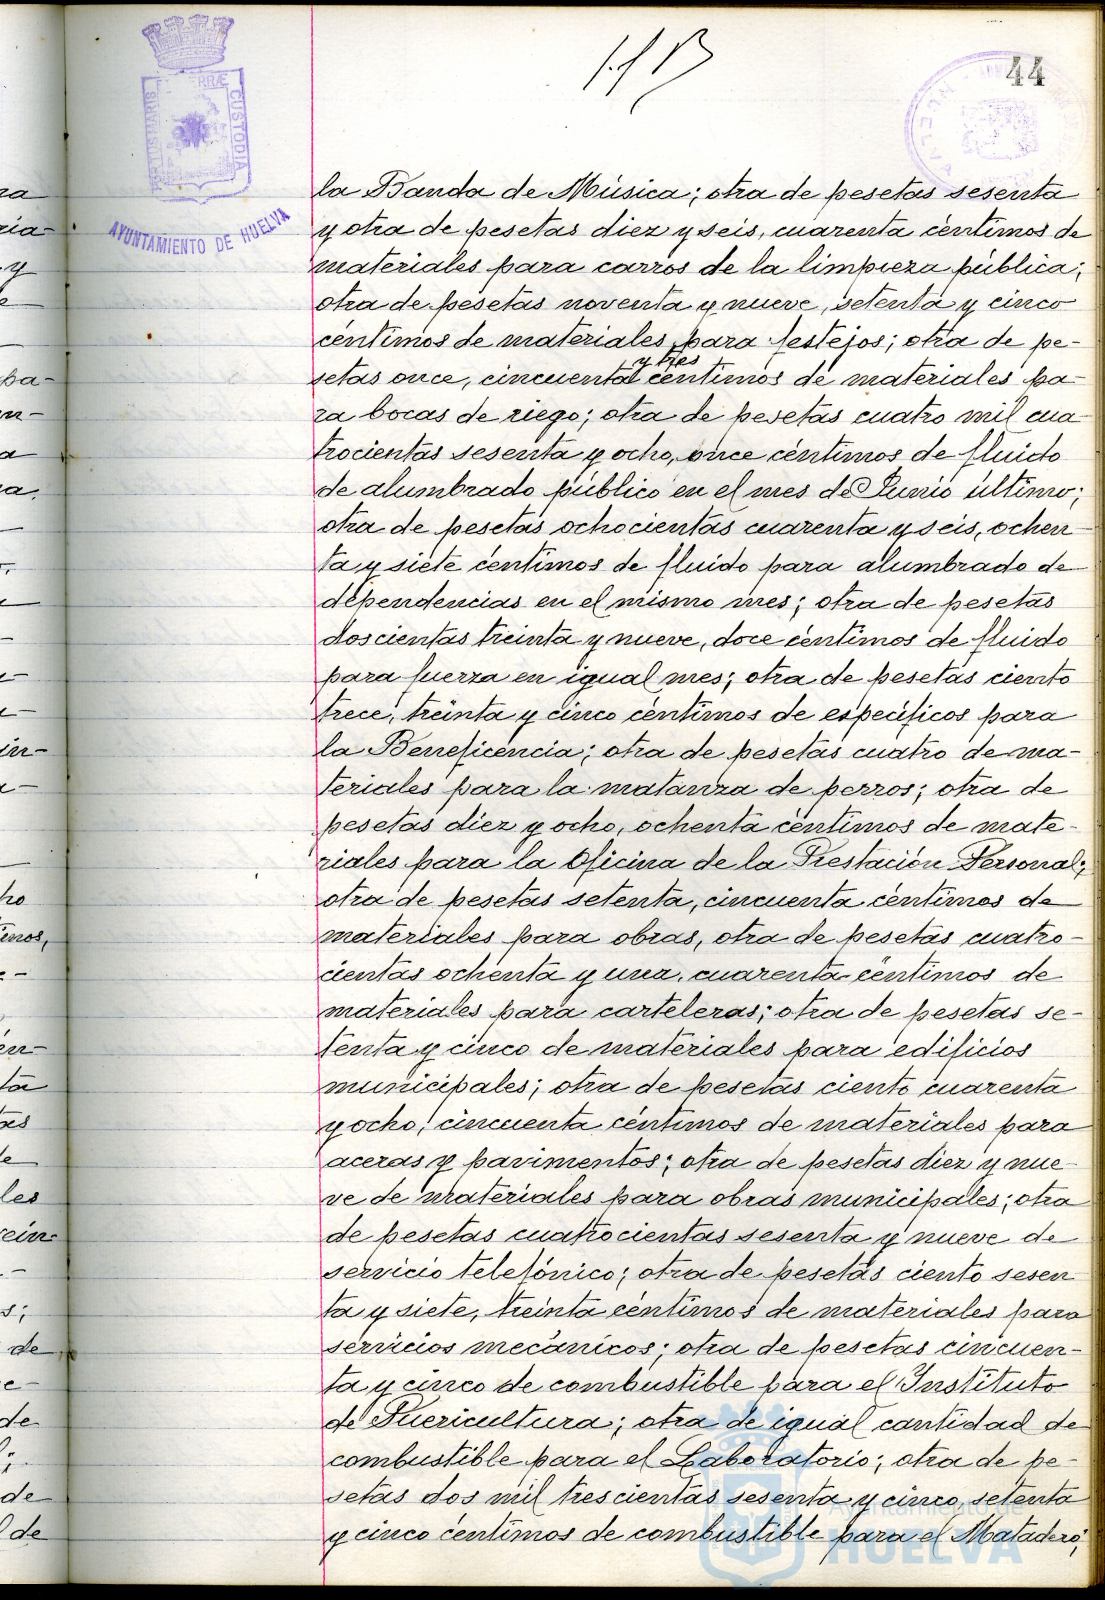 44
PORTUS MARIS
ET TERRÆ
CUSTODIA
AYUNTAMIENTO DE HUELVA
la Banda de Música; otra de pesetas sesenta
y otra de pesetas diez y seis, cuarenta céntimos de
materiales para carros de la limpieza pública;
otra de pesetas noventa y nueve, setenta y cinco
céntimos de materiales para festejos; otra de pe-
y tres
setas once, cincuenta céntimos de materiales pa-
ra bocas de riego; otra de pesetas cuatro mil cua
trocientas sesenta y ocho, once céntimos de fluido
de alumbrado público en el mes de Junio último;
otra de pesetas ochocientas cuarenta y seis, ochen
ta y siete céntimos de fluido para alumbrado de
dependencias en el mismo mes; otra de pesetas
doscientas treinta y nueve, doce céntimos de fluido
para fuerza en igual mes; otra de pesetas ciento
trece, treinta y cinco céntimos de específicos para
la Beneficencia; otra de pesetas cuatro de ma-
teriales para la matanza de perros; otra de
pesetas diez y ocho, ochenta céntimos de mate-
riales para la Oficina de la Prestación Personal;
otra de pesetas setenta, cincuenta céntimos de
materiales para obras, otra de pesetas cuatro-
cientas ochenta y una, cuarenta céntimos de
materiales para carteleras; otra de pesetas se-
tenta y cinco de materiales para edificios
municipales; otra de pesetas ciento cuarenta
y ocho, cincuenta céntimos de materiales para
aceras y pavimentos; otra de pesetas diez y nue-
ve de materiales para obras municipales; otra
de pesetas cuatrocientas sesenta y nueve de
servicio telefónico; otra de pesetas ciento sesen
ta y siete, treinta céntimos de materiales para
servicios mecánicos; otra de pesetas cincuen-
ta y cinco de combustible para el Instituto
de Puericultura; otra de igual cantidad de
combustible para el Laboratorio; otra de pe-
setas dos mil trescientas sesenta y cinco, setenta
y cinco céntimos de combustible para el Matadero;
Ayuntamiento de
HUELVA